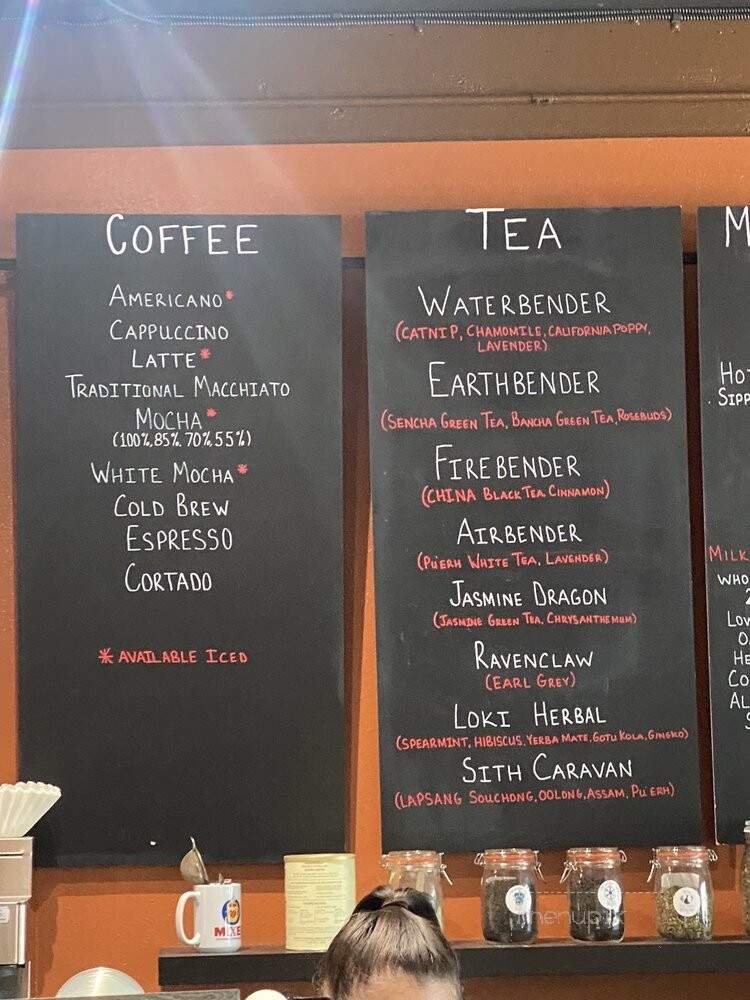 COFFEE
AMERICANO*
CAPPUCCINO
LATTE*
TRADITIONAL MACCHIATO
MOCHA*
(100%, 85%, 70%, 55%)
WHITE MOCHA*
COLD BREW
ESPRESSO
CORTADO
* AVAILABLE ICED
TEA
WATERBENDER
(CATNIP, CHAMOMILE, CALIFORNIA POPPY,
LAVENDER)
EARTHBENDER
(SENCHA GREEN TEA, BANCHA GREEN TEA, ROSEBUDS)
FIREBENDER
(CHINA BLACK TEA, CINNAMON)
AIRBENDER
(PU'ERH WHITE TEA, LAVENDER)
JASMINE DRAGON
(JASMINE GREEN TEA, CHRYSANTHEMUM)
RAVENCLAW
(EARL GREY)
LOKI HERBAL
(SPEARMINT, HIBISCUS, YERBA MATE, GOTU KOLA, GINGKO)
SITH CARAVAN
(LAPSANG SOUCHONG, OOLONG, ASSAM, PU'ERH)
M
HO
SIPP
MILK
WHO
2
LOW
HE
CO
AL
S
MIXE
menupix